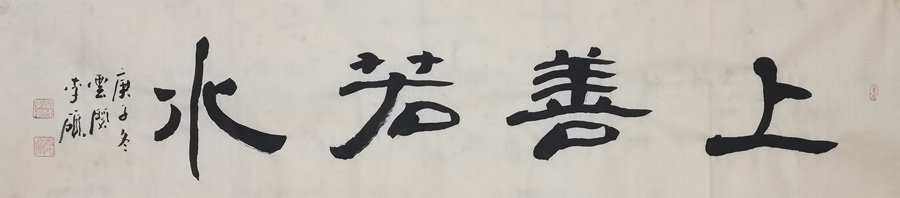 上善若水
庚子冬
雲賢
李碩